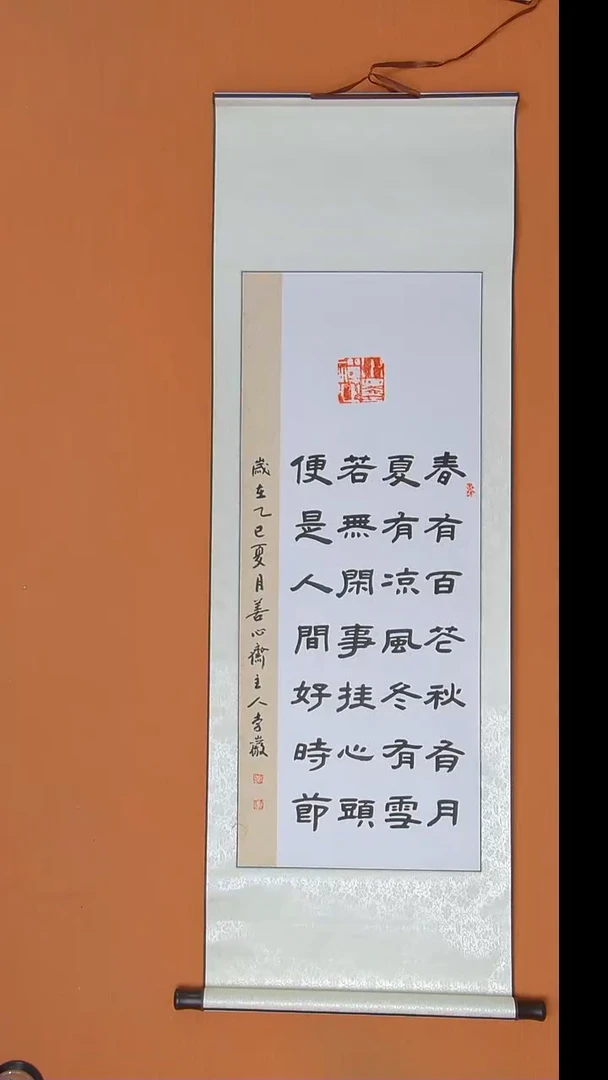 春有百花秋有月
夏有凉風冬有雪
若無閑事挂心頭
便是人間好時節
歲在乙巳夏月善心齋主人李巖